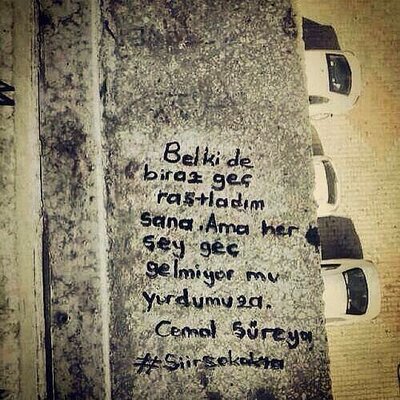 Belki de
biraz geç
rastladım
sana. Ama her
şey geç
gelmiyor mu
yurdumuza.
Cemal Süreya
#Şiirsokakta